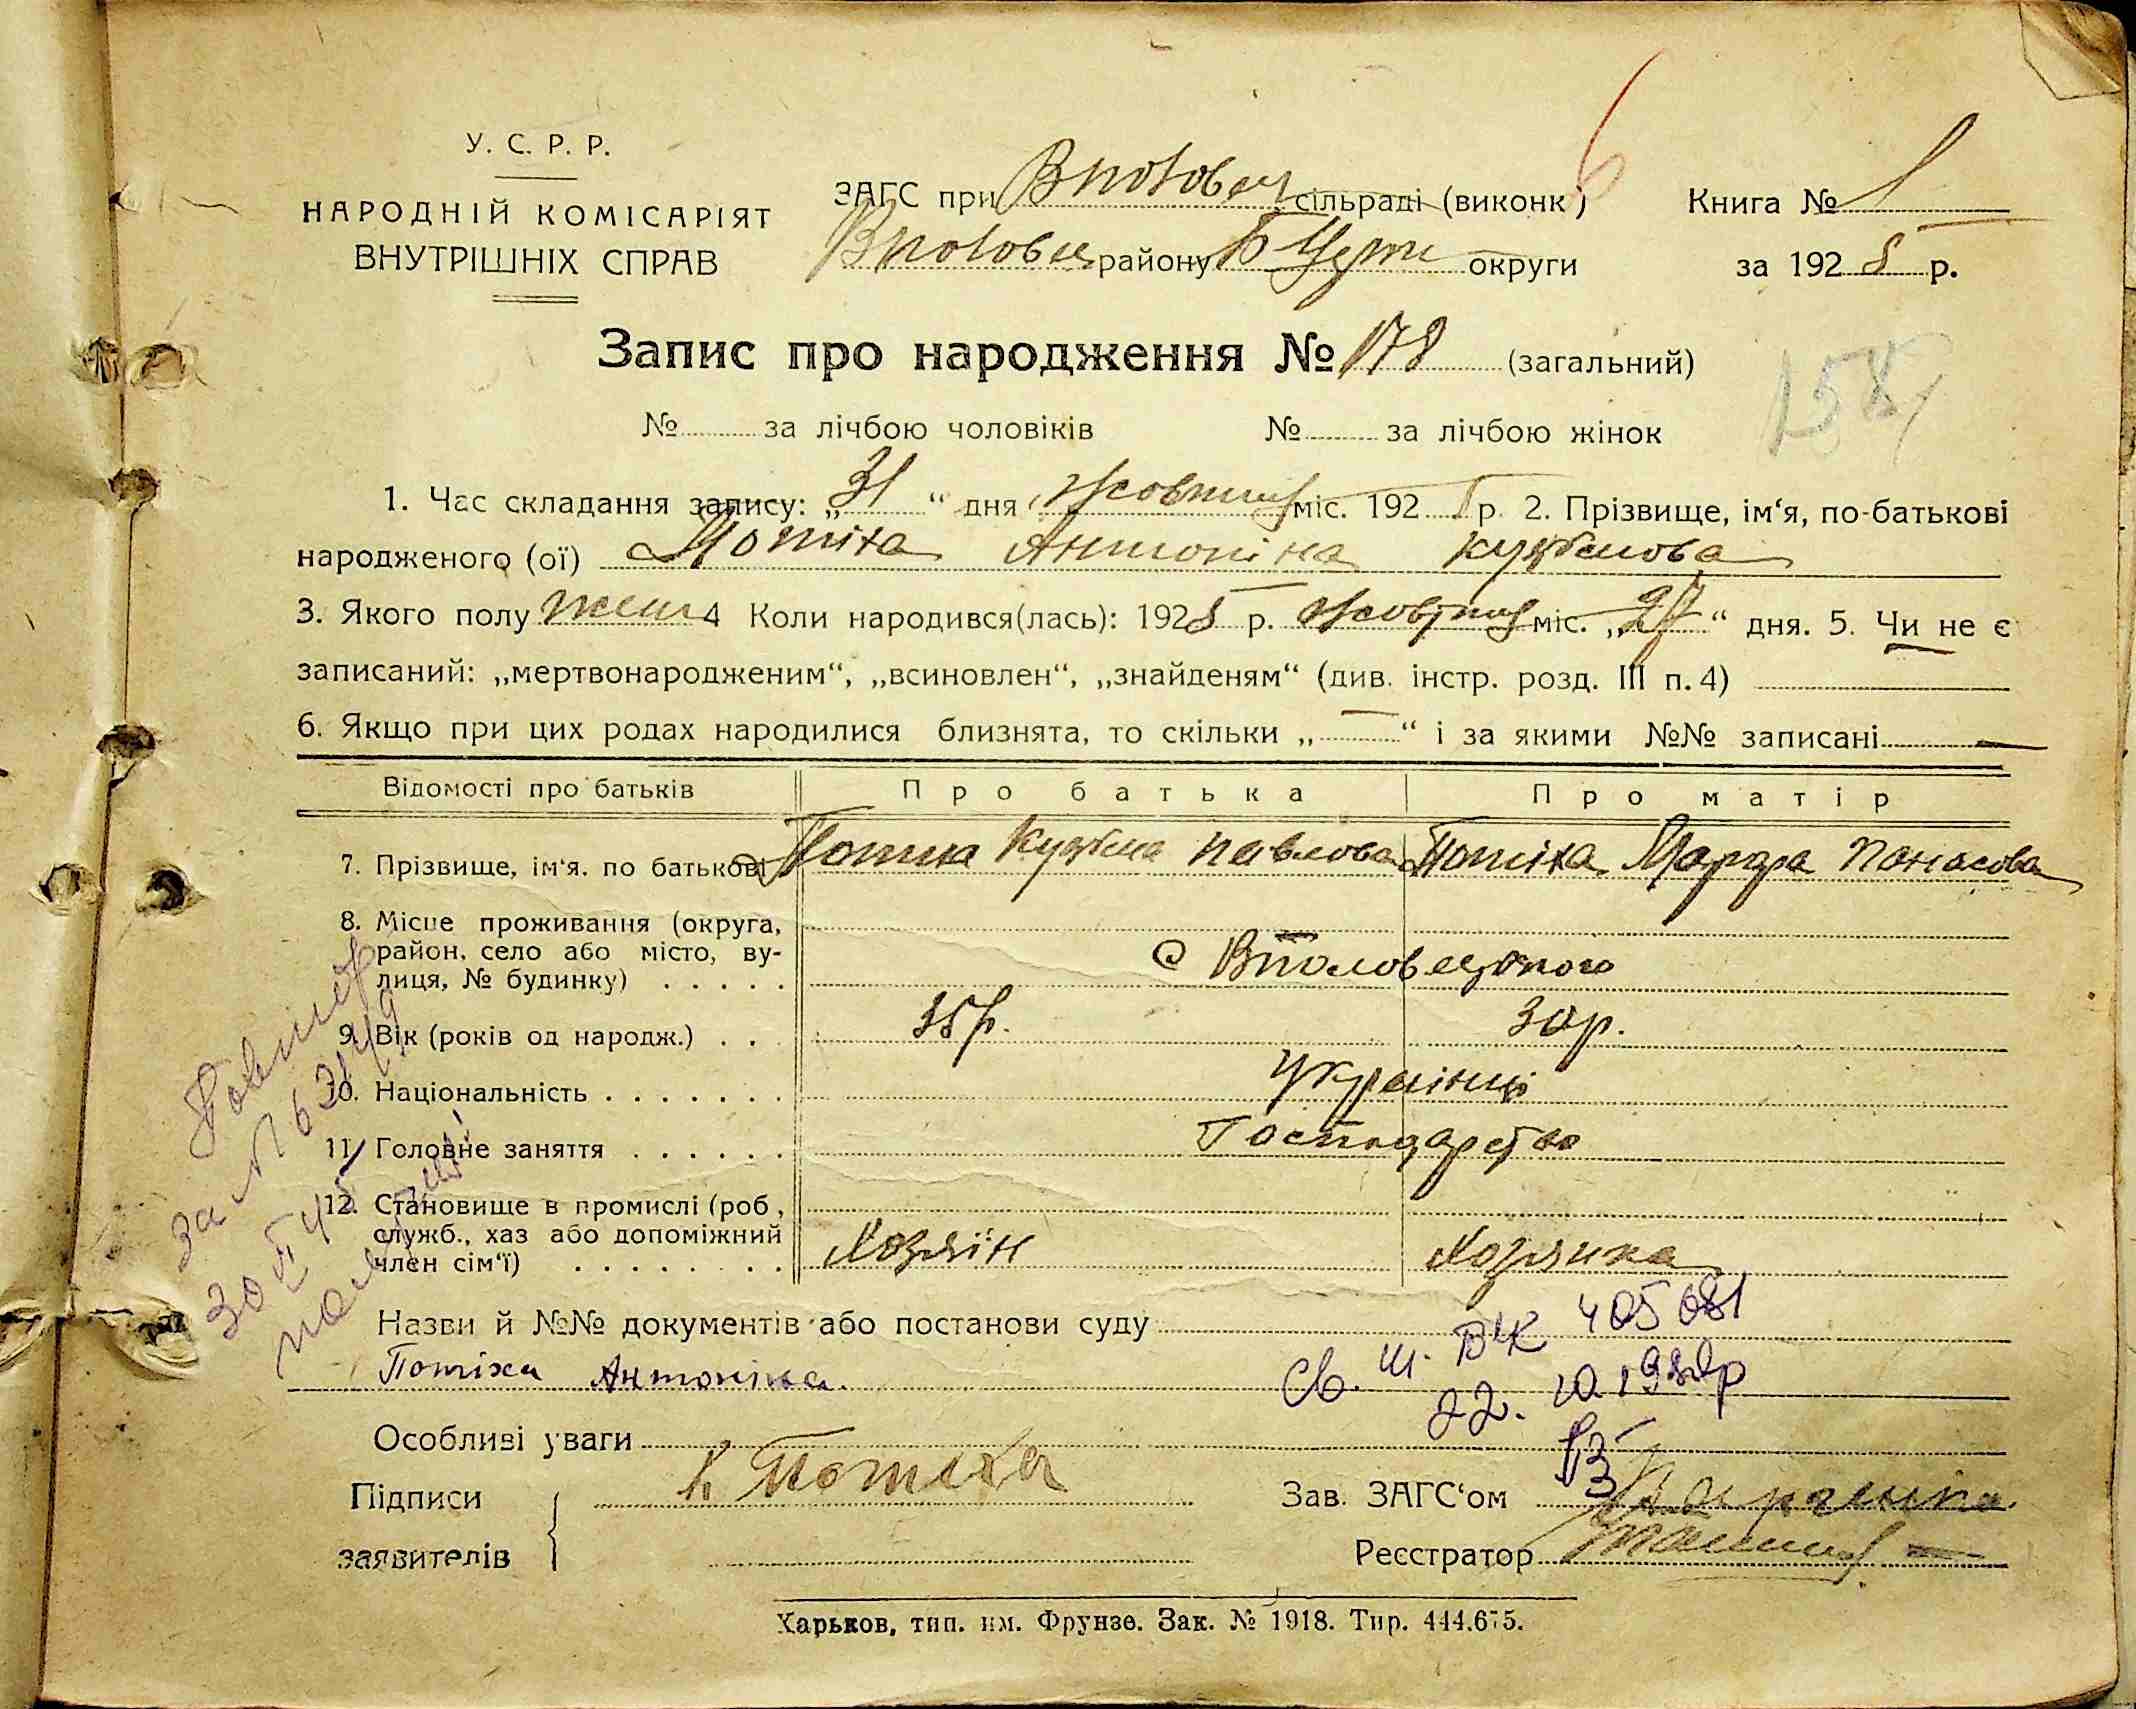 У. С. Р. Р.
НАРОДНІЙ КОМІСАРІЯТ
ВНУТРІШНІХ СПРАВ
ЗАГС при Вполовец сільраді (виконк)
Вполовец району Б Церкв округи
6
Книга № 1
за 1925 р.
Запис про народження № 178 (загальний)
158
№ за лічбою чоловіків № за лічбою жінок
1. Час складання запису: „31“ дня Жовтня міс. 1925 р. 2. Прізвище, ім‘я, по-батькові
народженого (ої) Потіха Антоніна Кузьмова
3. Якого полу жін 4 Коли народився(лась): 1925 р. Жовтня міс. „27“ дня. 5. Чи не є
записаний: „мертвонародженим“, „всиновлен“, „знайденям“ (див. інстр. розд. III п. 4)
6. Якщо при цих родах народилися близнята, то скільки „—“ і за якими №№ записані —
Відомості про батьків Про батька Про матір
7. Прізвище, ім‘я. по батькові Потіха Кузьма Павлова Потіха Мотря Панасова
8. Місце проживання (округа,
район, село або місто, ву-
лиця, № будинку) . . . . . с Вполовецького
9. Вік (років од народж.) . . . 35р. 30р.
10. Національність . . . . . . . Українці
11. Головне заняття . . . . . . Господарство
12. Становище в промислі (роб,
служб., хаз або допоміжний
член сім‘ї) . . . . . . . . Хозяїн Хозяйка
Назви й №№ документів або постанови суду
Потіха Антоніна.
Св. ІІІ. ВК 405081
22. 10 1980р
Особливі уваги
Підписи К Потіха
заявителів
Зав. ЗАГС‘ом
Реєстратор
Харьков, тип. им. Фрунзе. Зак. № 1918. Тир. 444.675.